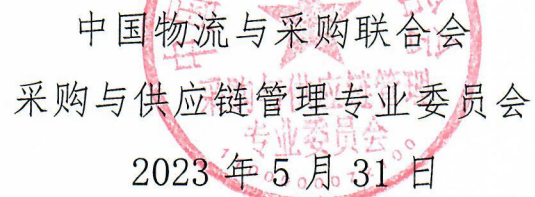 中国物流与采购联合会
采购与供应链管理专业委员会
2023年5月31日
采购与供应链管理
专业委员会